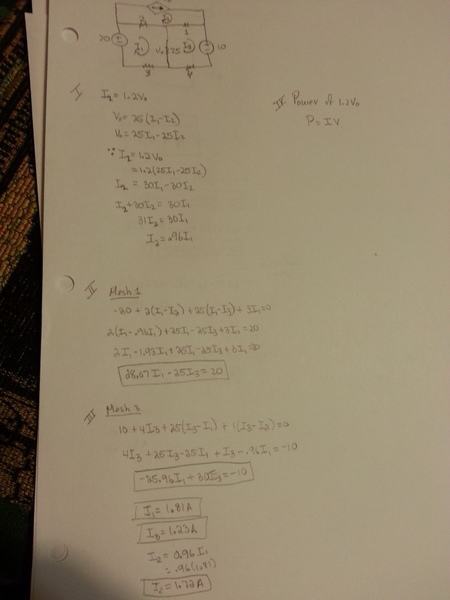 2
I₂
1
20
I₁
V₀
25
I₃
10
3
4
I
I₂ = 1.2V₀
IV Power of 1.2V₀
V₀ = 25(I₁-I₂)
P = IV
V₀ = 25I₁-25I₂
∵ I₂ = 1.2V₀
= 1.2(25I₁-25I₂)
I₂ = 30I₁-30I₂
I₂+30I₂ = 30I₁
31I₂ = 30I₁
I₂ = .96I₁
II Mesh 1
-20 + 2(I₁-I₂) + 25(I₁-I₃) + 3I₁=0
2(I₁-.96I₁) + 25I₁-25I₃+3I₁ = 20
2I₁-1.93I₁+25I₁-25I₃+3I₁=20
28.07I₁-25I₃ = 20
III Mesh 3
10 + 4I₃ + 25(I₃-I₁) + 1(I₃-I₂)=0
4I₃ + 25I₃-25I₁ + I₃-.96I₁ = -10
-25.96I₁ + 30I₃=-10
I₁ = 1.81A
I₃ = 1.23A
I₂ = 0.96I₁
= .96(1.81)
I₂ = 1.72A